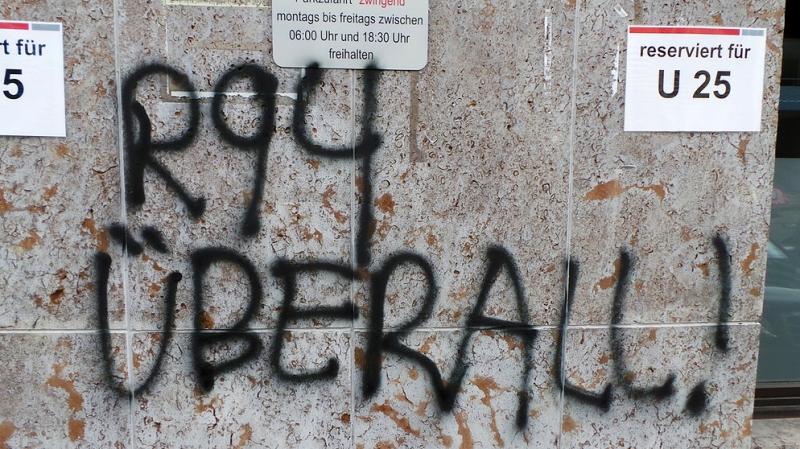 Parkzufahrt zwingend
montags bis freitags zwischen
06:00 Uhr und 18:30 Uhr
freihalten
rt für
5
reserviert für
U 25
R94
ÜBERALL!